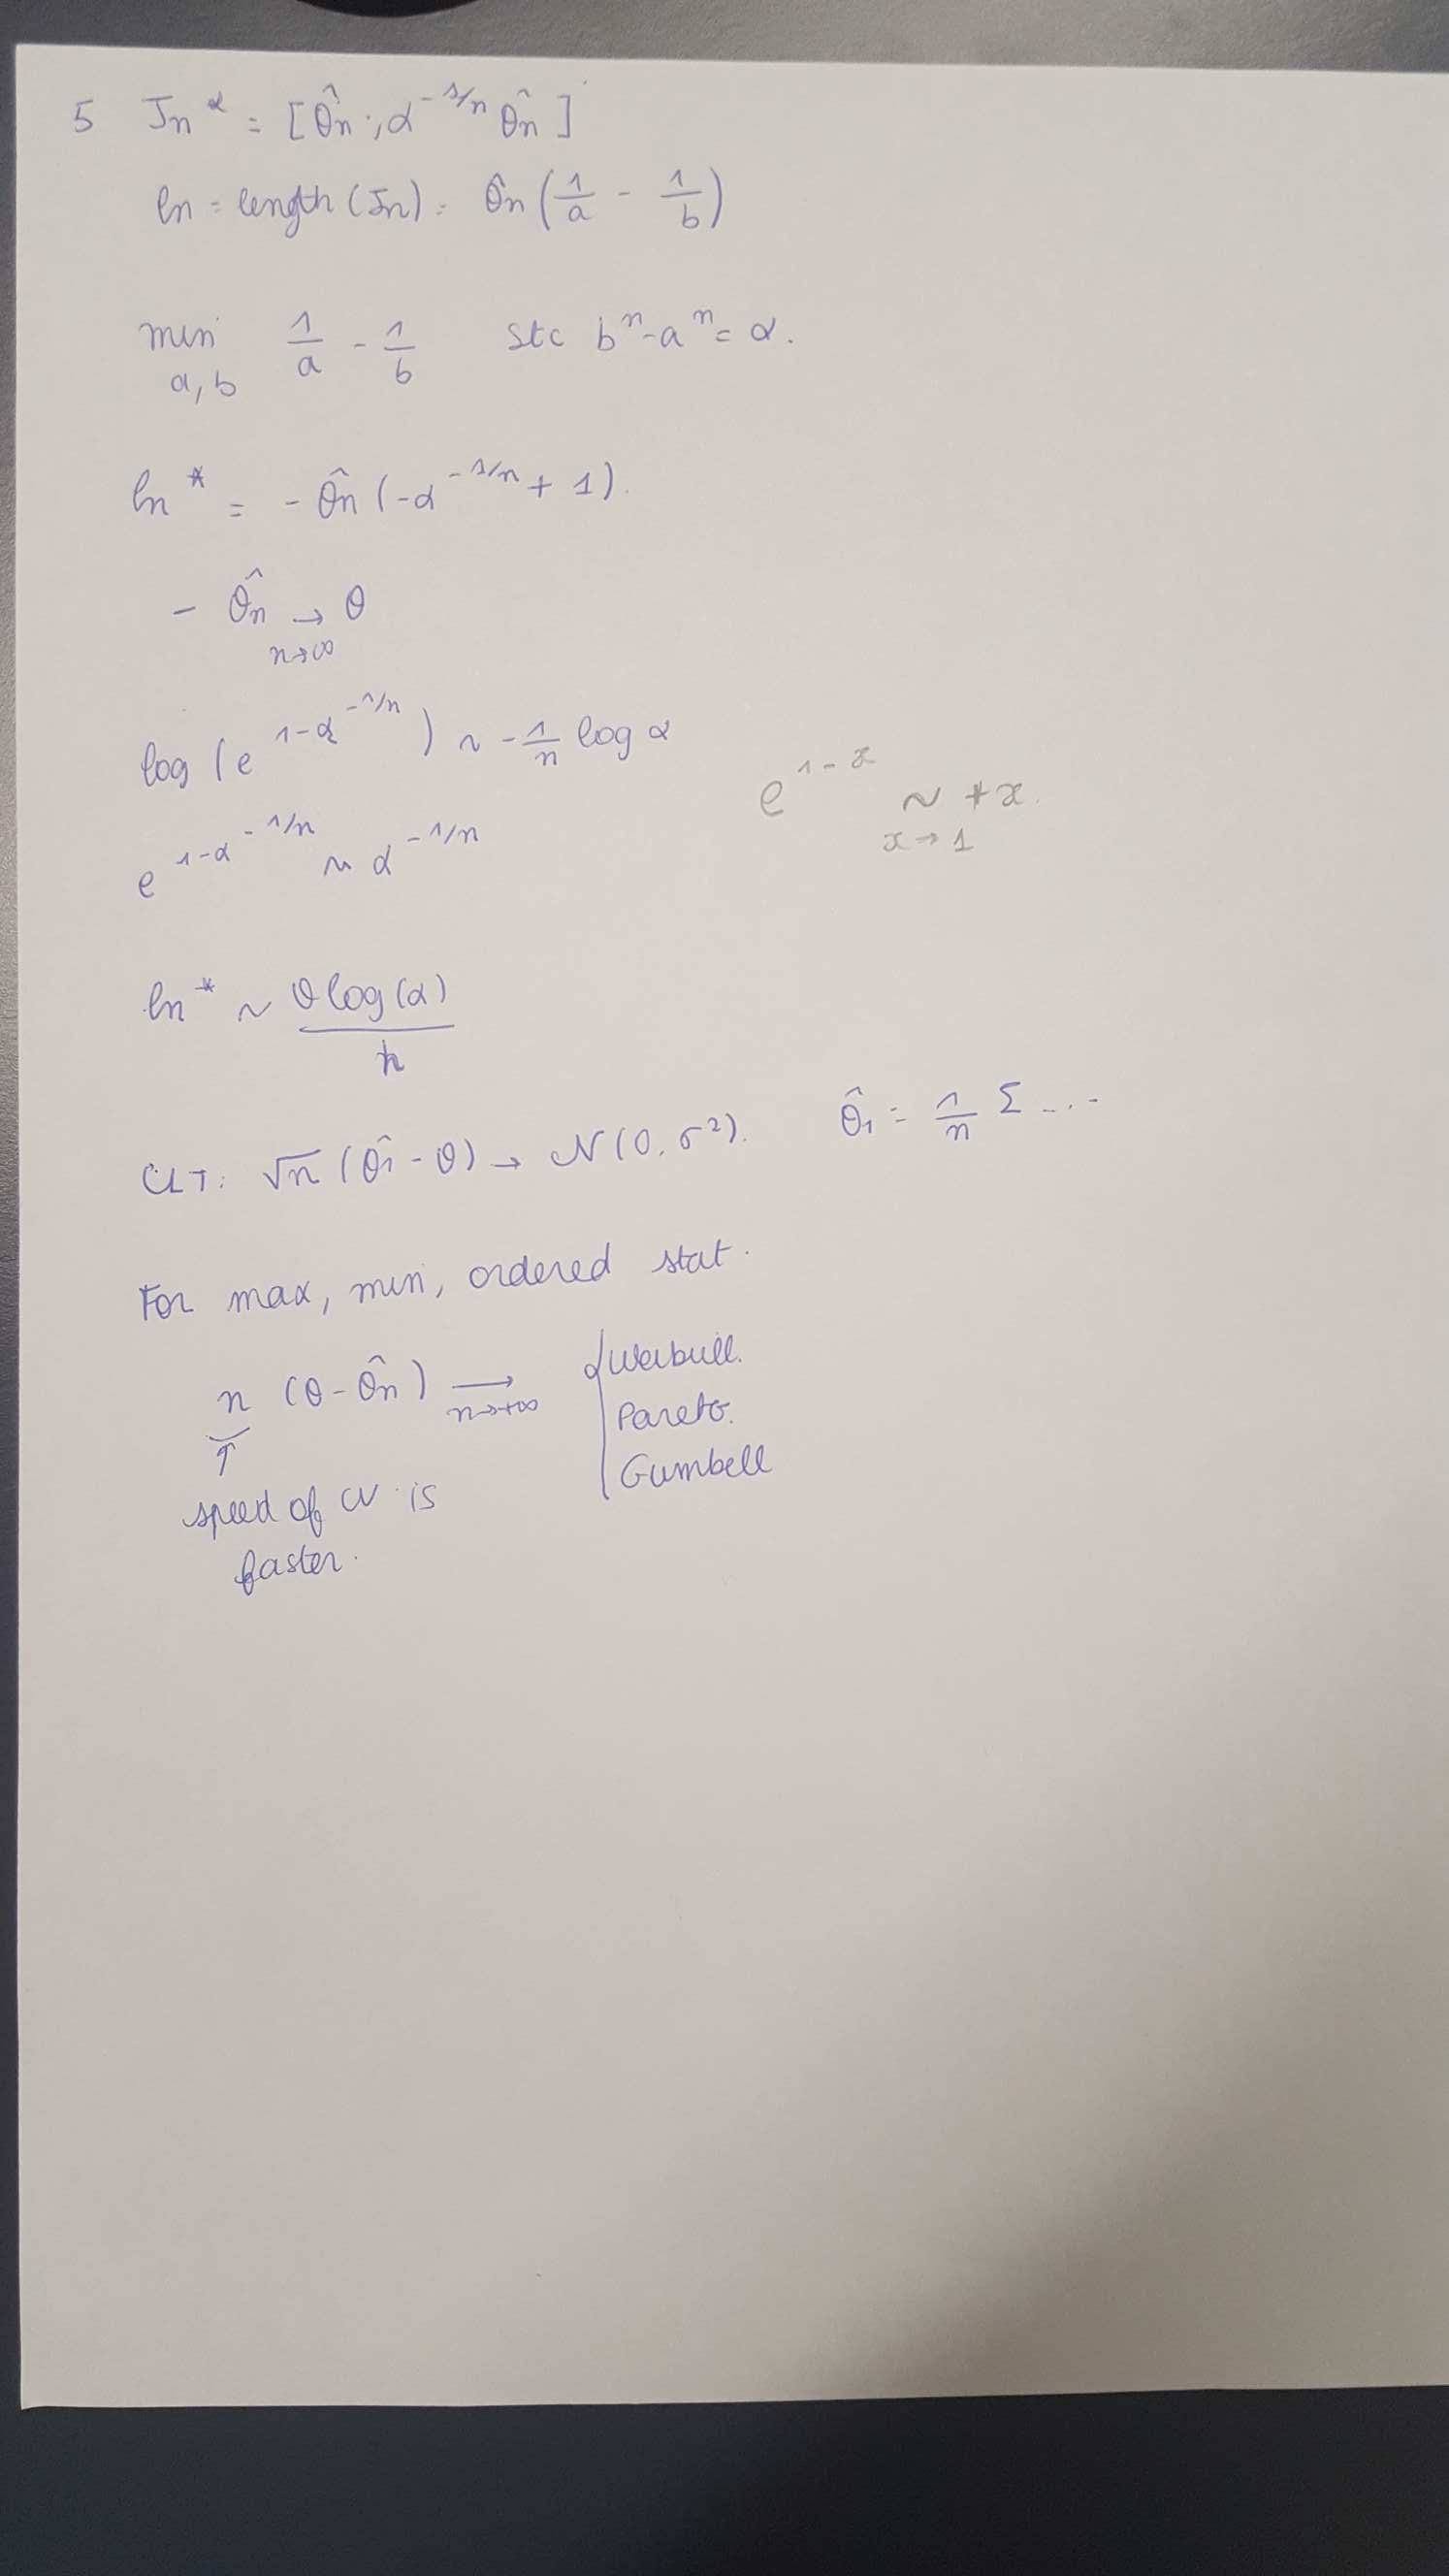 5 Jn^α = [θ̂n ; α^{-1/n} θ̂n]
ln = length(Jn) = θ̂n (1/a - 1/b)
min a,b 1/a - 1/b stc b^n - a^n = α.
ln* = - θ̂n (-α^{-1/n} + 1).
- θ̂n → θ n→∞
log (e^{1-α^{-1/n}}) ~ -1/n log α
e^{1-x} ~ +x. x→1
e^{1-α^{-1/n}} ~ α^{-1/n}
ln* ~ θ log(α) / n
CLT: √n (θ̂1 - θ) → N(0, σ²). θ̂1 = 1/n Σ ...
For max, min, ordered stat.
n (θ - θ̂n) → n→+∞ { Weibull.
Pareto.
Gumbell
↑
speed of CV is
faster.